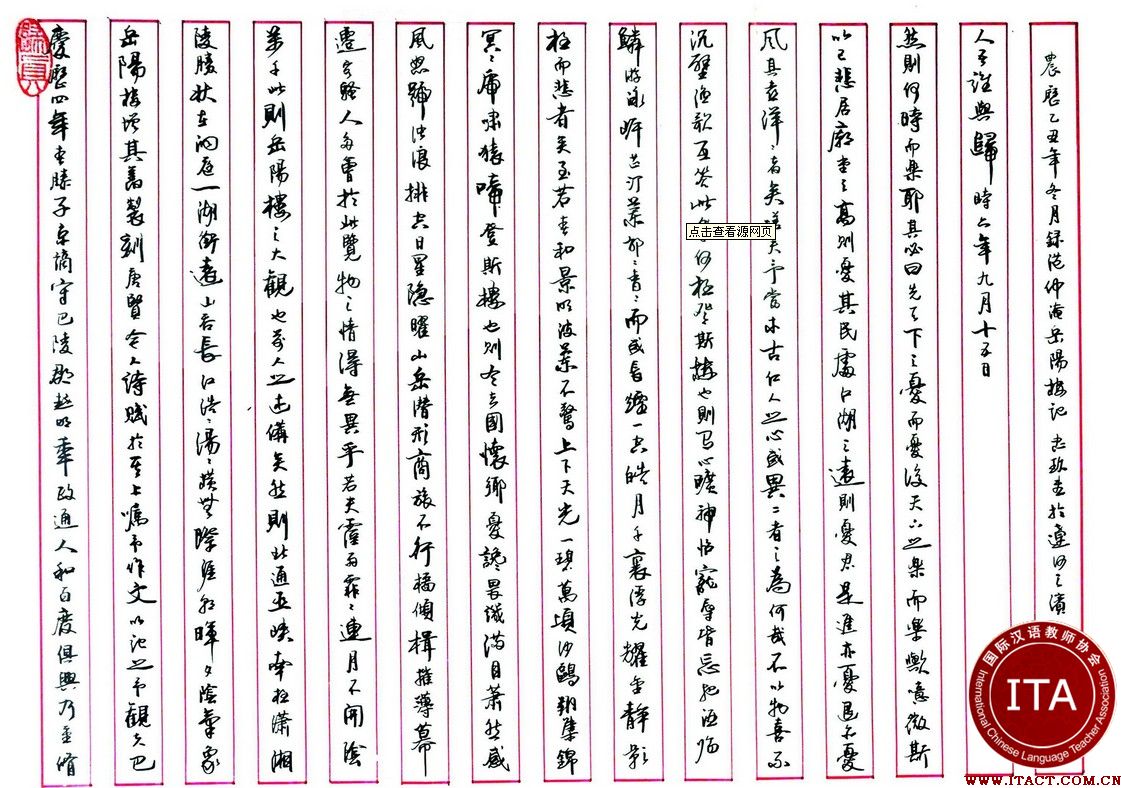 慶歷四年春滕子京謫守巴陵郡越明年政通人和百廢俱興乃重脩
岳陽樓增其舊製刻唐賢今人詩賦於其上囑予作文以記之予觀夫巴
陵勝狀在洞庭一湖銜遠山吞長江浩〻湯〻橫無際涯朝暉夕陰氣象
萬千此則岳陽樓之大觀也前人之述備矣然則北通巫峽南極瀟湘
遷客騷人多會於此覽物之情得無異乎若夫霪雨霏〻連月不開陰
風怒號濁浪排空日星隐曜山岳潛形商旅不行檣傾楫摧薄暮
冥〻虎嘯猿啼登斯樓也則有去國懷鄉憂讒畏譏滿目蕭然感
極而悲者矣至若春和景明波瀾不驚上下天光一碧萬頃沙鷗翔集錦
鱗游泳岸芷汀蘭郁〻青〻而或長煙一空皓月千里浮光耀金靜影
沉璧漁歌互答此樂何極登斯樓也則有心曠神怡寵辱皆忘把酒臨
風其喜洋〻者矣嗟夫予嘗求古仁人之心或異二者之為何哉不以物喜不
以己悲居廟堂之高則憂其民處江湖之遠則憂其君是進亦憂退亦憂
然則何時而樂耶其必曰先天下之憂而憂後天下之樂而樂歟噫微斯
人吾誰與歸 時六年九月十五日
農歷乙丑年冬月録范仲淹岳陽樓記 書於遼河之濱
点击查看源网页
国际汉语教师协会
ITA
International Chinese Language Teacher Association
WWW.ITACT.COM.CN